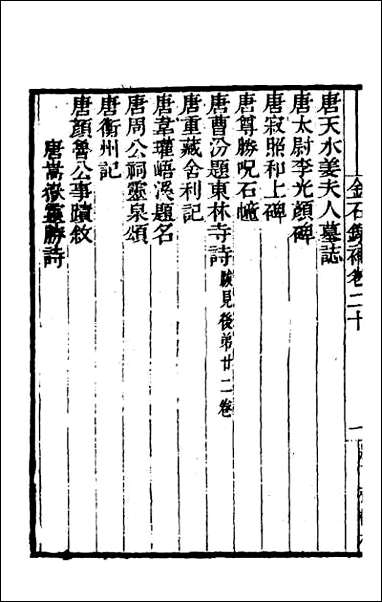 金石錄補卷二十
一
唐天水姜夫人墓誌
唐太尉李光顏碑
唐寂照和上碑
唐尊勝呪石幢
唐曹汾題東林寺詩 跋見後第廿二卷
唐重藏舍利記
唐韋瓘浯溪題名
唐周公祠靈泉頌
唐衢州記
唐顏魯公事蹟敘
唐嵩嶽靈勝詩